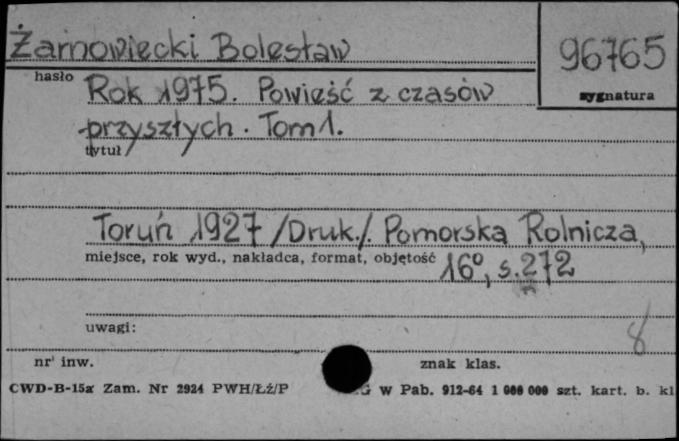 Żarnowiecki Bolesław
96765
hasło
sygnatura
Rok 1975. Powieść z czasów
przyszłych. Tom 1.
tytuł
Toruń 1927 /Druk./. Pomorska Rolnicza,
miejsce, rok wyd., nakładca, format, objętość
16°, s. 272
uwagi:
8
nr inw.
znak klas.
CWD-B-15a Zam. Nr 2924 PWH/Łź/P
w Pab. 912-64 1 000 000 szt. kart. b. kl